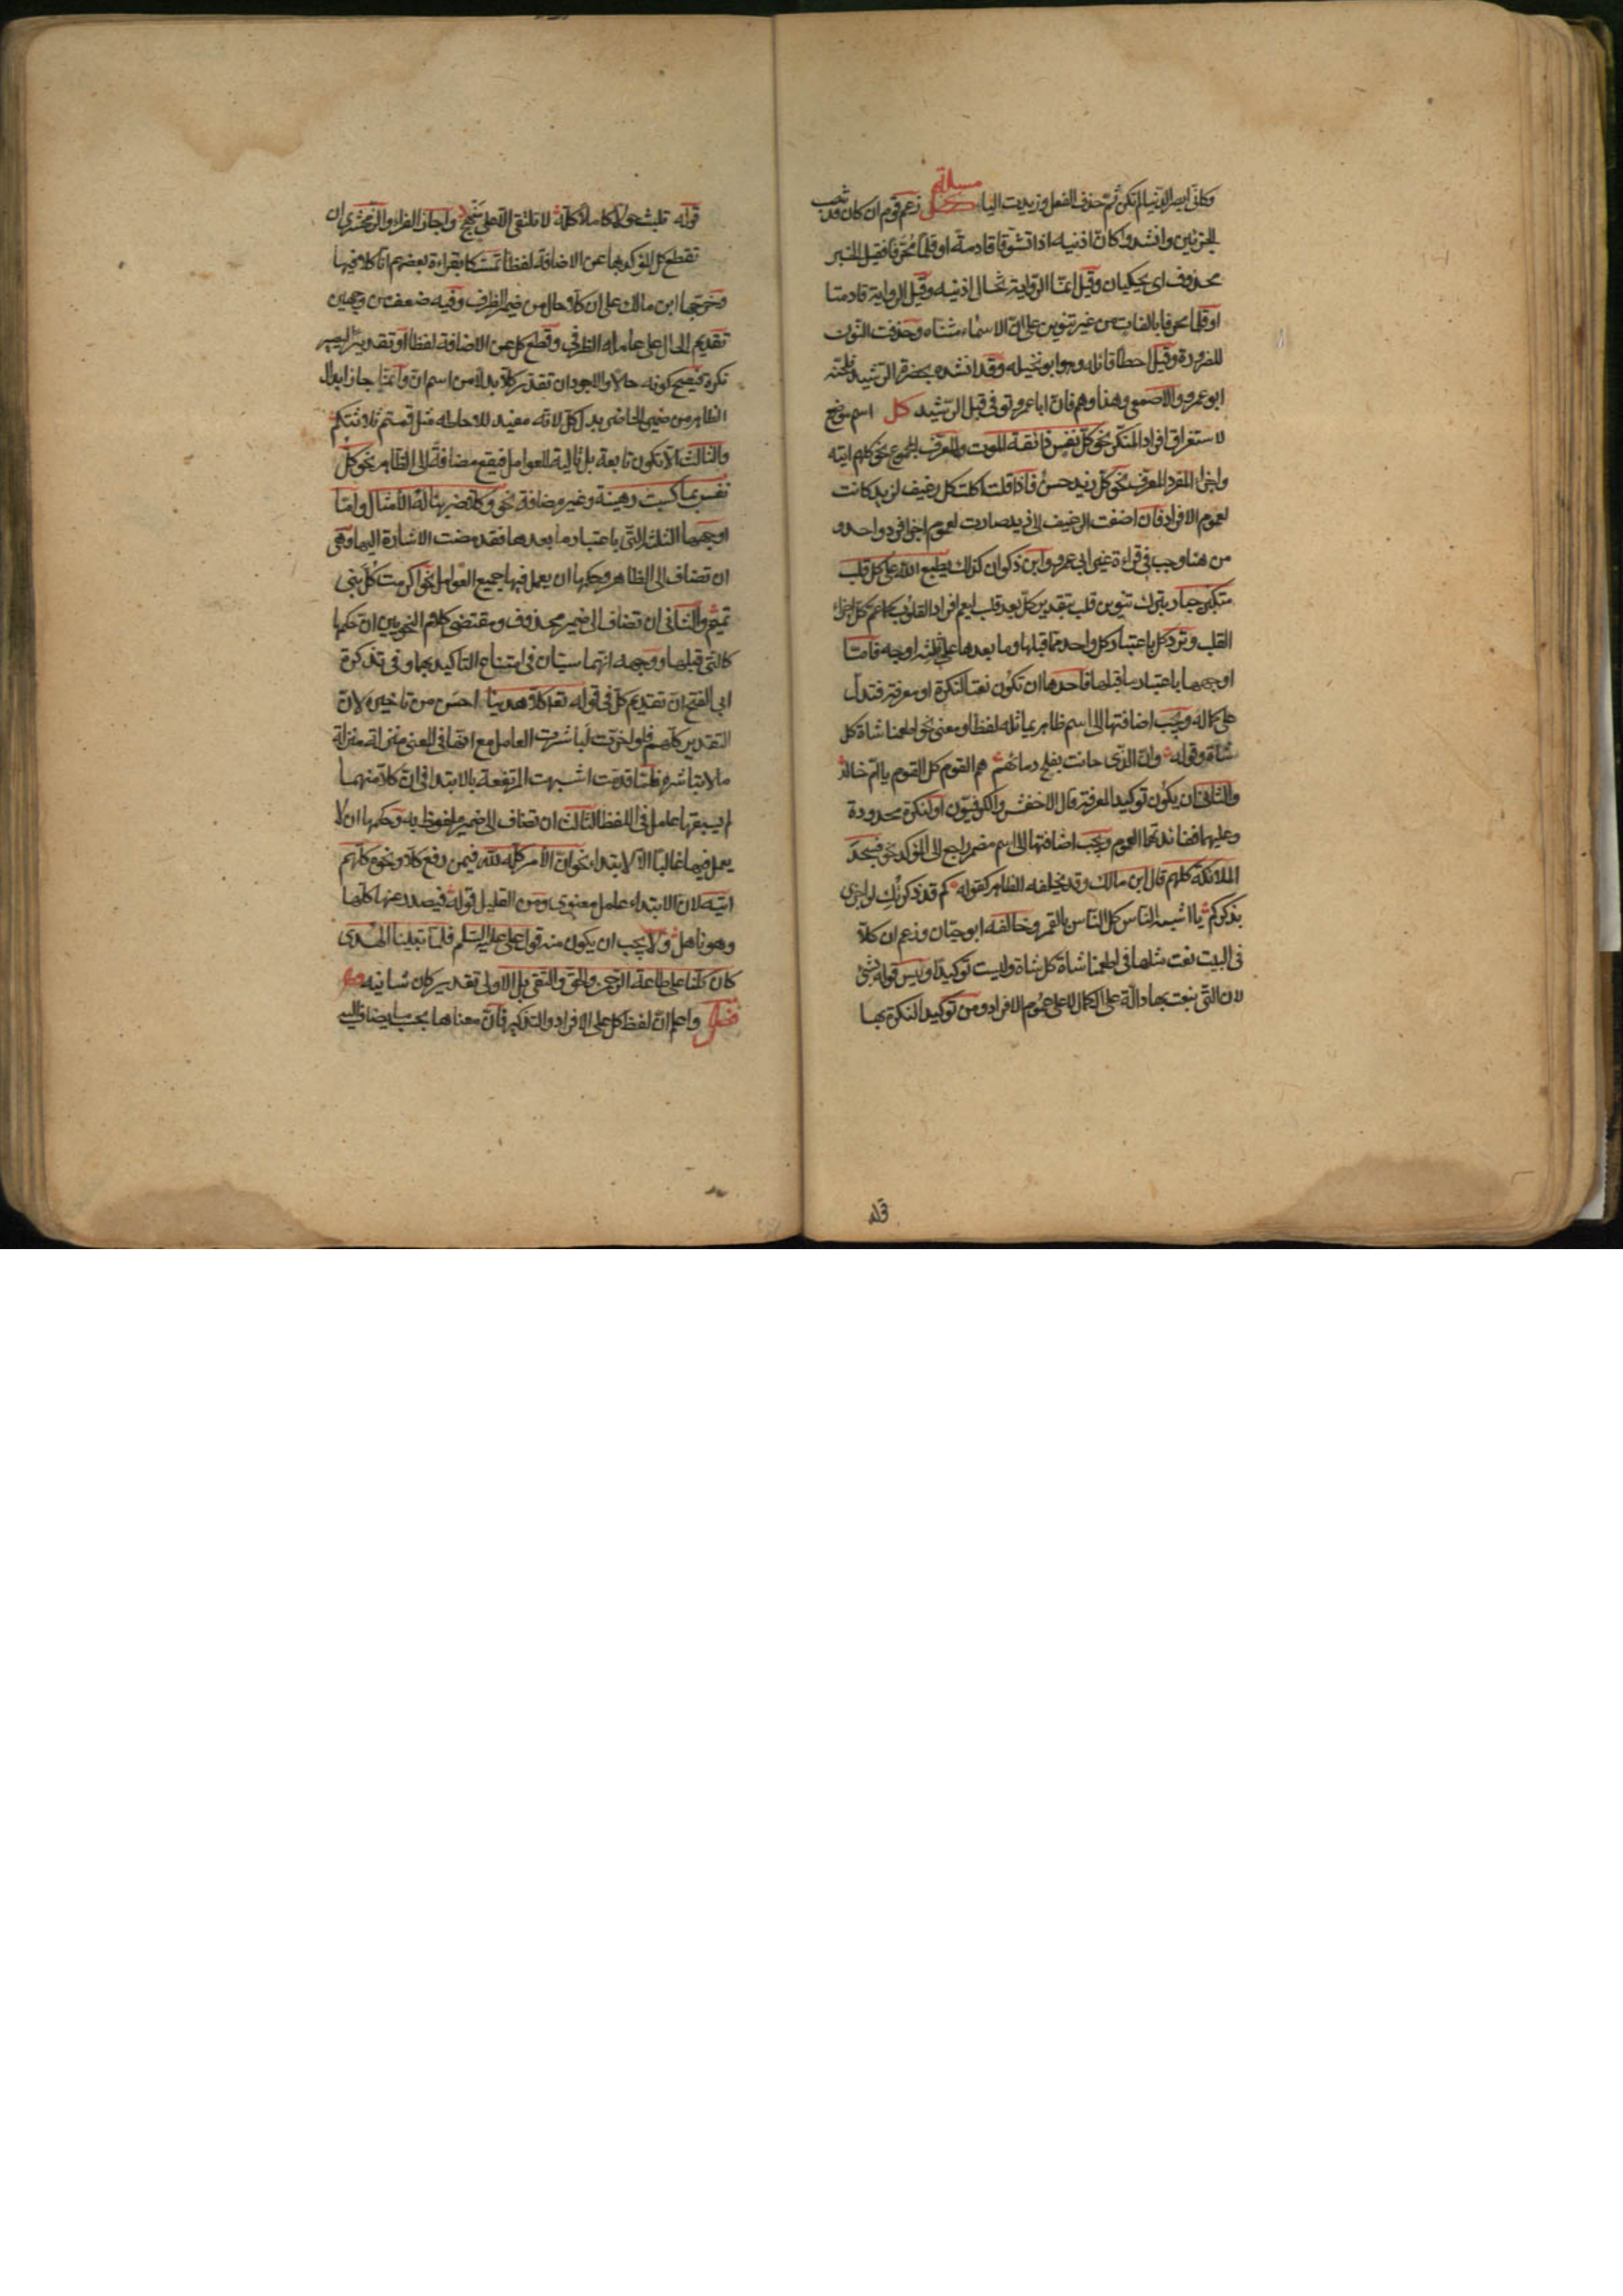 وكانّي ابصر الدّنيا لم تكن ثمّ حذف الفعل وزيدت الياء مسئلة زعم قوم ان كان قد تنصب
الجزئين وانشدوا كانّ اذنيه اذا تشوّفا قادمة او قلما محرّفا فقيل الخبر
محذوف اى يحكيان وقيل انّما الرّواية تخال اذنيه وقيل الرواية قادمتا
او قلما محرفا بالفات من غير تنوين على انّ الاسماء مثناه وحذفت النّون
للضرورة وقيل اخطأ قائله وهو ابو نخيله وقد انشده بحضرة الرّشيد فلحّنه
ابو عمرو والاصمعى وهذا وهم فانّ ابا عمرو توفى قبل الرّشيد كل اسم موضع
لاستغراق افراد المنكّر نحو كلّ نفس ذائقة الموت والمعرّف المجموع نحو كلهم اتيه
واجزاء المفرد المعرّف نحو كلّ زيد حسن فاذا قلت اكلت كل رغيف لزيد كانت
لعموم الافراد فان اضفت الرغيف الى زيد صارت لعموم اجزاء فرد واحد و
من هنا وجب فى قراءة غير ابى عمرو وابن ذكوان كذلك يطبع الله على كل قلب
متكبّر جبار بترك تنوين قلب تقدير كلّ بعد قلب ليعم افراد القلوب كما عم كلّ اجزاء
القلب وترد كل باعتبار كل واحد ممّا قبلها وما بعدها على ثلثة اوجه فامّا
اوجهها باعتبار ما قبلها فاحدها ان تكون نعتا لنكرة او معرفة فتدلّ
على كماله ويجب اضافتها الى اسم ظاهر يماثله لفظا ومعنى نحو اطعمنا شاة كل
شاة وقوله وانّ الذى حانت بفلج دمائهم هم القوم كل القوم يا امّ خالد
والثانى ان يكون توكيدا لمعرفة قال الاخفش والكوفيّون او لنكرة محدودة
وعليهما ففائدتها العموم ويجب اضافتها الى اسم مضمر راجع الى المؤكد نحو فسجد
الملائكة كلهم قال ابن مالك وقد يخلفه الظاهر كقوله كم قد ذكرتك لو اجزى
بذكركم يا اشبه النّاس كل النّاس بالقمر وخالفه ابو حيّان وزعم ان كلّا
فى البيت نعت مثلها فى اطعمنا شاة كل شاة وليست توكيدا وليس قوله بشئ
لان التّى ينعت بها دالّة على الكمال لا على عموم الافراد ومن توكيد النكرة بها
قوله
قوله تلبث حولا كاملا كلّه لا نلتقى الّا على منهج واجاز الفراء والزمخشرى ان
تقطع كل المؤكد بها عن الاضافة لفظا تمسّكا بقراءة بعضهم انّا كلا فيها
وخرّجها ابن مالك على ان كلّا حال من ضمير الظرف وفيه ضعف من وجهين
تقديم الحال على عامله الظرفى وقطع كل عن الاضافة لفظا وتقديرا ليصير
نكرة فيصح كونه حالا والاجود ان تقدّر كلّا بدلا من اسم انّ وانّما جاز ابدال
الظاهر من ضمير الحاضر بدل كل لانّه مفيد للاحاطه مثل قمتم ثلاثتكم
والثالث الّا تكون تابعة بل تالية للعوامل فيقع مضافة الى الظاهر نحو كلّ
نفس بما كسبت رهينة وغير مضافة نحو وكلّا ضربنا له الامثال وامّا
اوجهها الثلثة التّى باعتبار ما بعدها فقد مضت الاشارة اليها وهى
ان تضاف الى الظاهر وحكمها ان يعمل فيها جميع العوامل نحو اكرمت كلّ بنى
تميم والثانى ان تضاف الى ضمير محذوف ومقتضى كلام النحويين ان حكمها
كالتى قبلها ووجهه انهما سيّان فى امتناع التاكيد بهما وفى تذكرة
ابى الفتح انّ تقديم كلّ فى قوله تعا كلا هدينا احسن من تاخيره لانّ
التقدير كلّهم فلو اخّرت لباشرت العامل مع انّها فى المعنى منزلة منزلة
ما لا يباشره فلمّا قدمت اشبهت المرتفعة بالابتداء فى انّ كلّا منهما
لم يسبقها عامل فى اللفظ الثالث ان تضاف الى ضمير ملفوظ به وحكمها ان لا
يعمل فيها غالبا الّا الابتداء نحو انّ الأمر كلّه لله فيمن رفع كلّا ونحو كلّهم
اتيه لان الابتداء عامل معنوى ومن القليل قوله فيصدر عنها كلّها
وهو ناهل ولا يجب ان يكون منه قول على عليه السّلم فلمّا تبيّنا الهدى
كان كلّنا على طاعة الرّحمن والحق والتقى بل الاولى تقدير كان شانيه
فصل واعلم انّ لفظ كل على الافراد والتذكير فانّ معناها بحسب ما يضاف اليه